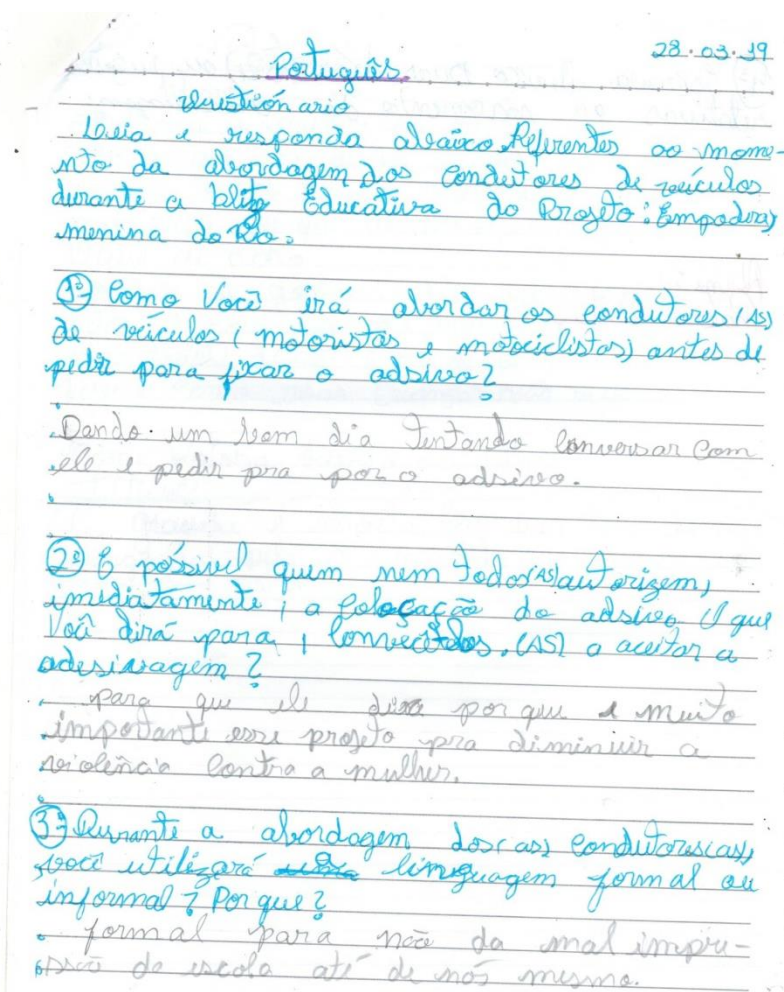 28.03.19
Português
Questionário
Leia e responda abaixo Referentes ao mome-
nto da abordagem dos condutores de veículos
durante a blitz Educativa do Projeto: Empodera,
menina do Rio.
1ª Como Você irá abordar os condutores (AS)
de veículos (motoristas e motociclistas) antes de
pedir para fixar o adsivo?
Dando um bom dia tentando conversar com
ele e pedir pra por o adsivo.
2ª É possivel quem nem todos(AS) autorizem,
imediatamente, a colocação do adsivo. O que
Você dirá para, (AS) a aceitar a
adesivagem?
para que ele por que é muito
importante esse projeto pra diminuir a
violência contra a mulher.
3ª Durante a abordagem dos(as) condutores(as),
você utilizará linguagem formal ou
informal? Por que?
formal para não da mal impre-
ssão da escola até de nós mesmo.